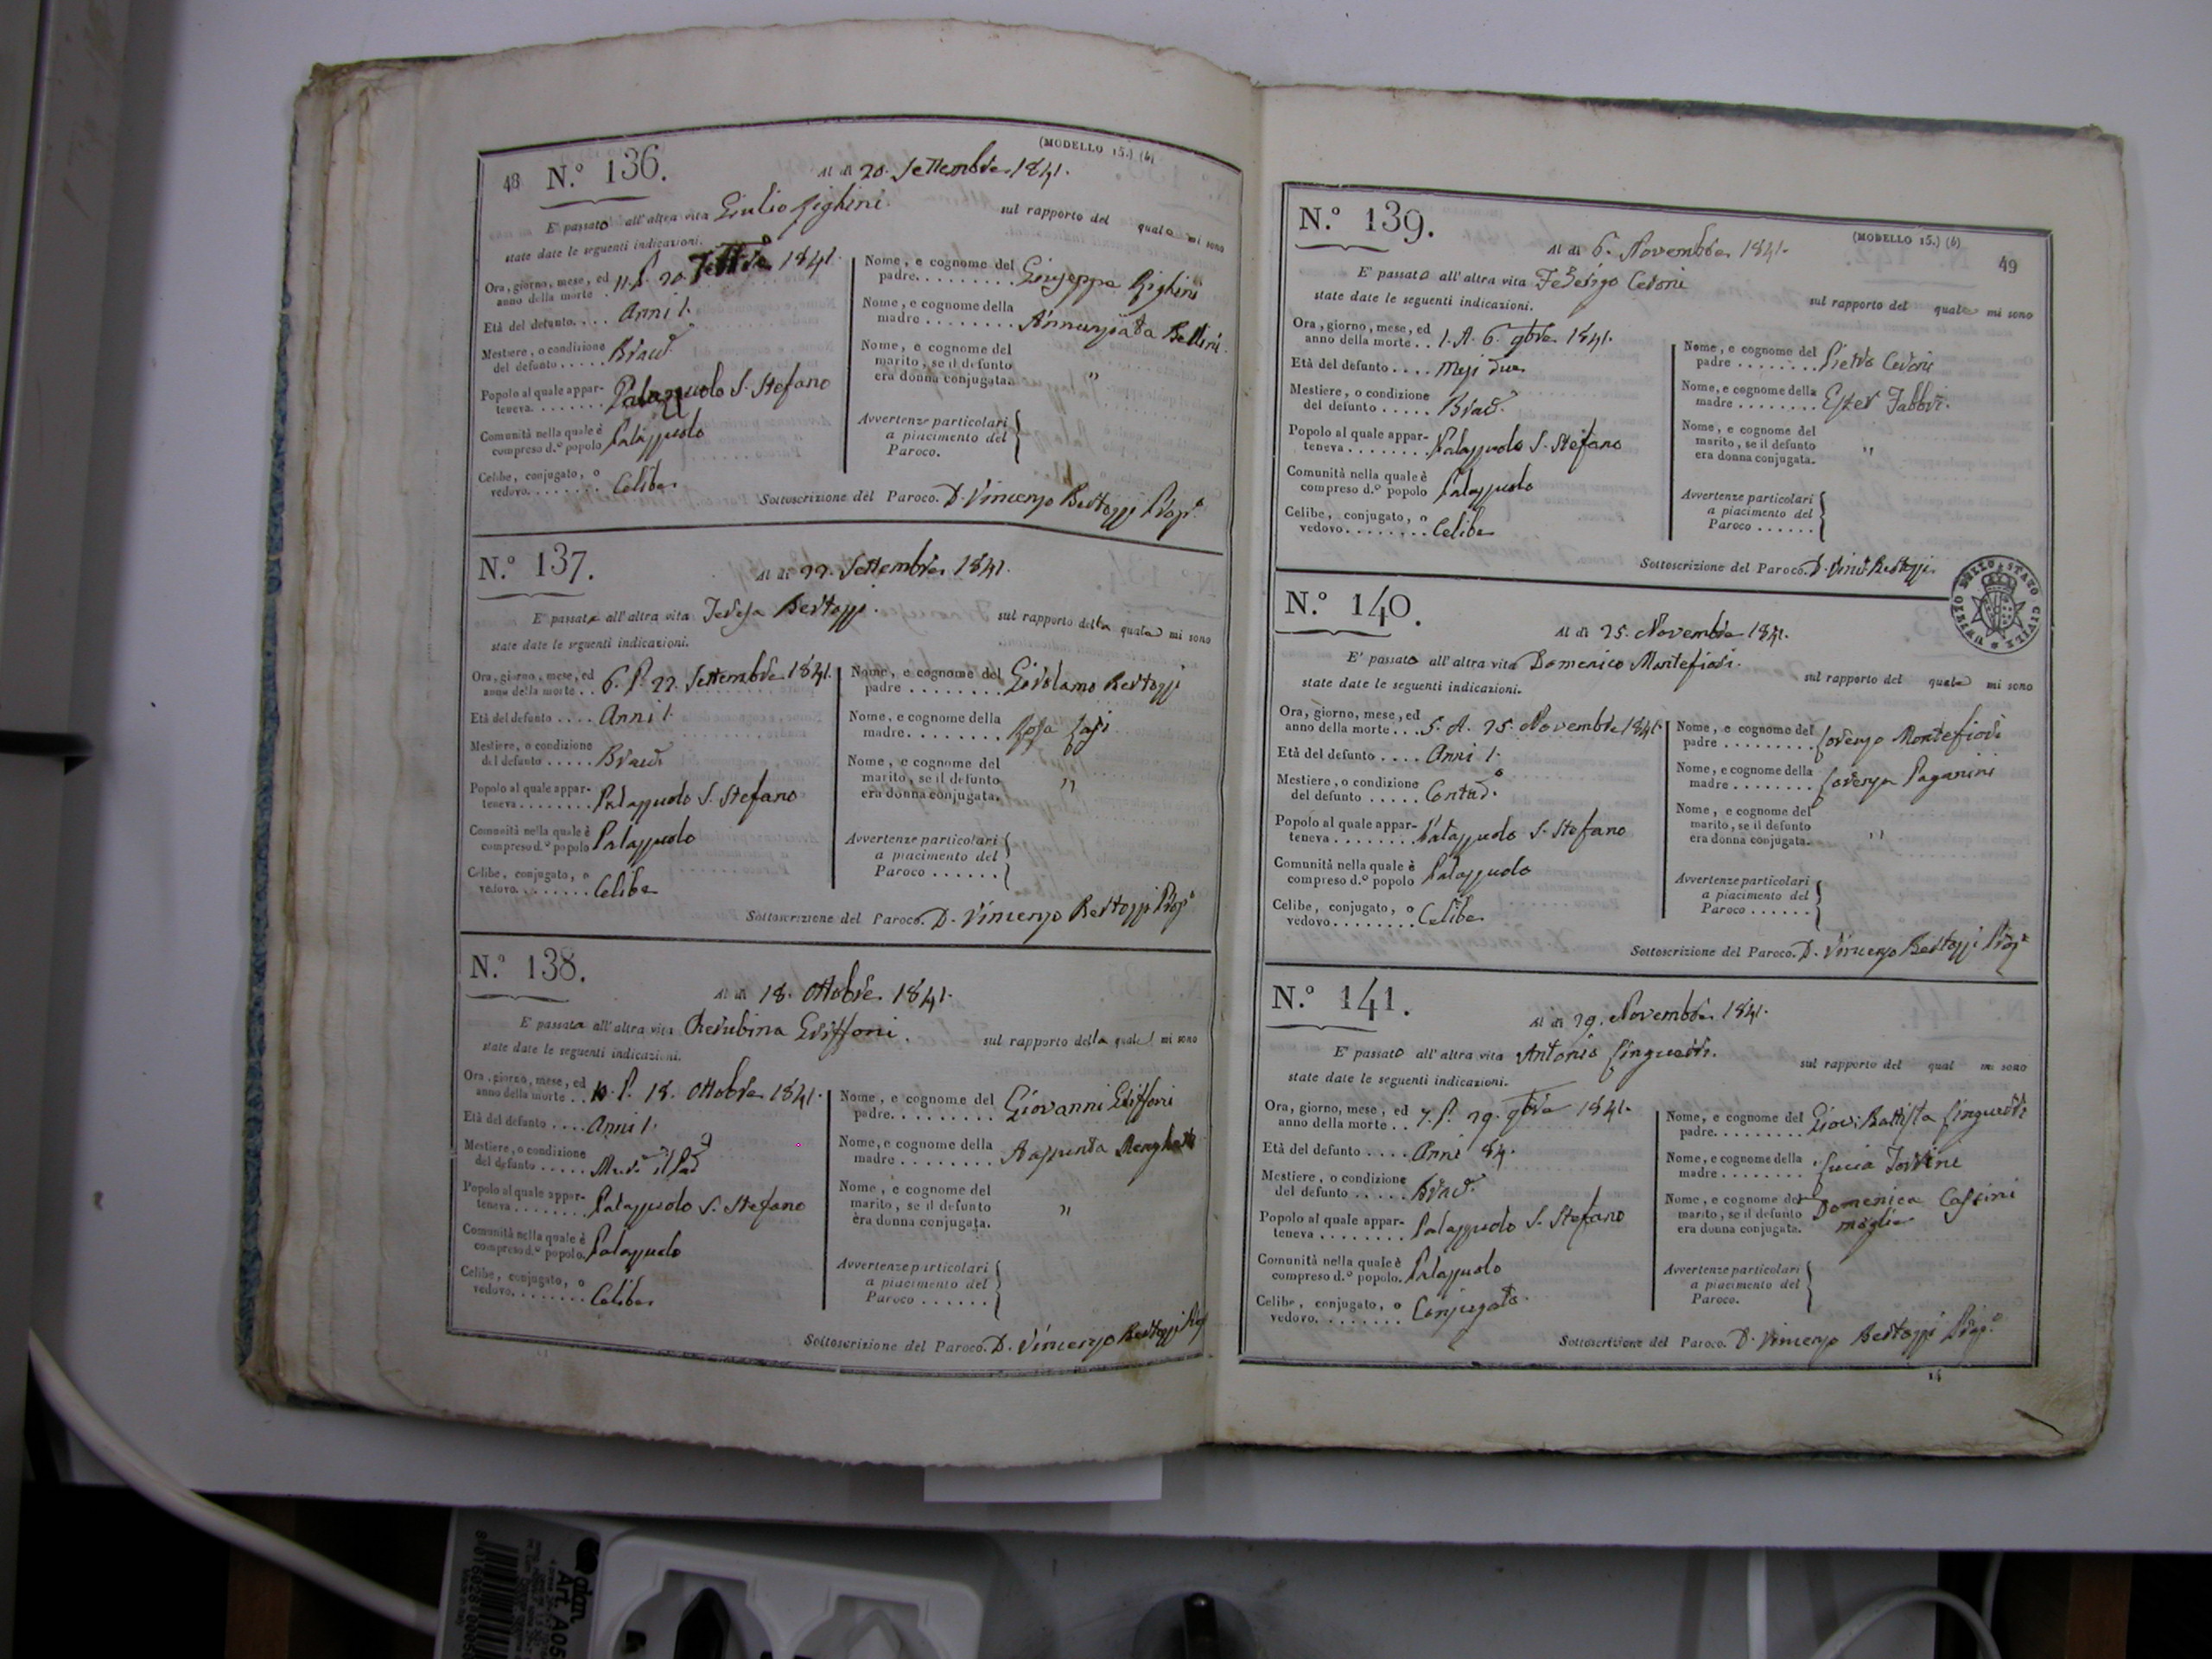 48 N.º 136.
(MODELLO 15.) (b)
Al dì 20. Settembre 1841.
E' passato all'altra vita Giulio Righini. sul rapporto del quale mi sono
state date le seguenti indicazioni.
Ora, giorno, mese, ed anno della morte . 11. P. 20. 1841.
Età del defunto. . . . Anni 1.
Mestiere, o condizione del defunto . . . . . Brac.
Popolo al quale apparteneva. . . . . . . . Palazzuolo S. Stefano
Comunità nella quale è compreso d.º popolo Palazzuolo
Celibe, conjugato, o vedovo. . . . . . . . Celibe
Nome, e cognome del padre. . . . . . . . . Giuseppe Righini
Nome, e cognome della madre . . . . . . . . Annunziata Bellini
Nome, e cognome del marito, se il defunto era donna conjugata. "
Avvertenze particolari a piacimento del Paroco.
Sottoscrizione del Paroco. D. Vincenzo Bertozzi Prop.º
N.º 137.
Al dì 22. Settembre 1841.
E' passata all'altra vita Teresa Bertozzi. sul rapporto della quale mi sono
state date le seguenti indicazioni.
Ora, giorno, mese, ed anno della morte . . 6. P. 22. Settembre 1841.
Età del defunto . . . . Anni 1.
Mestiere, o condizione del defunto . . . . . Brac.
Popolo al quale apparteneva . . . . . . . . Palazzuolo S. Stefano
Comunità nella quale è compreso d.º popolo Palazzuolo
Celibe, conjugato, o vedovo. . . . . . . . . Celibe
Nome, e cognome del padre . . . . . . . . Girolamo Bertozzi
Nome, e cognome della madre. . . . . . . . Rosa
Nome, e cognome del marito, se il defunto era donna conjugata. "
Avvertenze particolari a piacimento del Paroco . . . . . .
Sottoscrizione del Paroco. D. Vincenzo Bertozzi Prop.º
N.º 138.
Al dì 18. Ottobre 1841.
E' passata all'altra vita Cherubina Griffoni. sul rapporto della quale mi sono
state date le seguenti indicazioni.
Ora, giorno, mese, ed anno della morte . . 10. P. 18. Ottobre 1841.
Età del defunto . . . . Anni 1.
Mestiere, o condizione del defunto . . . . .
Popolo al quale apparteneva . . . . . . . . Palazzuolo S. Stefano
Comunità nella quale è compreso d.º popolo. Palazzuolo
Celibe, conjugato, o vedovo. . . . . . . . . Celibe
Nome, e cognome del padre. . . . . . . . . Giovanni Griffoni
Nome, e cognome della madre . . . . . . . . Assunta
Nome, e cognome del marito, se il defunto era donna conjugata. "
Avvertenze particolari a piacimento del Paroco . . . . . .
Sottoscrizione del Paroco. D. Vincenzo Bertozzi Prop
N.º 139.
(MODELLO 15.) (b)
49
Al dì 6. Novembre 1841.
E' passato all'altra vita Federigo Ceroni sul rapporto del quale mi sono
state date le seguenti indicazioni.
Ora, giorno, mese, ed anno della morte . . 1. A. 6. 9bre 1841.
Età del defunto . . . . Mesi due
Mestiere, o condizione del defunto . . . . . Brac.
Popolo al quale apparteneva . . . . . . . . Palazzuolo S. Stefano
Comunità nella quale è compreso d.º popolo Palazzuolo
Celibe, conjugato, o vedovo. . . . . . . . . Celibe
Nome, e cognome del padre . . . . . . . . Pietro Ceroni
Nome, e cognome della madre . . . . . . . . Ester Fabbri.
Nome, e cognome del marito, se il defunto era donna conjugata. "
Avvertenze particolari a piacimento del Paroco . . . . . .
Sottoscrizione del Paroco. D. Vinc. Bertozzi
BOLLO STATO CIVILE
N.º 140.
Al dì 25. Novembre 1841.
E' passato all'altra vita Domenico Montefiori. sul rapporto del quale mi sono
state date le seguenti indicazioni.
Ora, giorno, mese, ed anno della morte . . . 5. A. 25. Novembre 1841.
Età del defunto . . . . Anni 1.
Mestiere, o condizione del defunto . . . . . Contad.º
Popolo al quale apparteneva . . . . . . . . Palazzuolo S. Stefano
Comunità nella quale è compreso d.º popolo Palazzuolo
Celibe, conjugato, o vedovo. . . . . . . . Celibe
Nome, e cognome del padre . . . . . . . . . Lorenzo Montefiori
Nome, e cognome della madre . . . . . . . . Lorenza Paganini
Nome, e cognome del marito, se il defunto era donna conjugata. "
Avvertenze particolari a piacimento del Paroco . . . . . .
Sottoscrizione del Paroco. D. Vincenzo Bertozzi Prop.º
N.º 141.
Al dì 29. Novembre 1841.
E' passato all'altra vita Antonio Linguerri. sul rapporto del qual mi sono
state date le seguenti indicazioni.
Ora, giorno, mese, ed anno della morte . . 7. P. 29. 9bre 1841.
Età del defunto . . . . Anni 84.
Mestiere, o condizione del defunto . . . . . Brac.
Popolo al quale apparteneva . . . . . . . . Palazzuolo S. Stefano
Comunità nella quale è compreso d.º popolo. Palazzuolo
Celibe, conjugato, o vedovo. . . . . . . . Conjugato.
Nome, e cognome del padre. . . . . . . . Giov: Battista Linguerri
Nome, e cognome della madre . . . . . . . . Lucia
Nome, e cognome del marito, se il defunto era donna conjugata. Domenica Cassini moglie
Avvertenze particolari a piacimento del Paroco.
Sottoscrizione del Paroco. D. Vincenzo Bertozzi Prop.º
14
adam
Art. A05